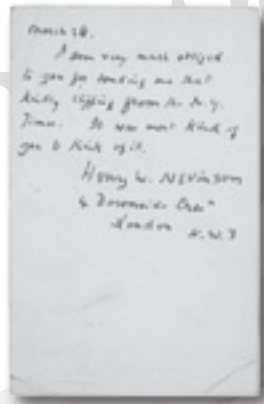 March 28.
I am very much obliged
to you for sending me that
kindly clipping from the N.Y.
Times. It was most kind of
you to think of it.
Henry W. Nevinson
4 Downside Cres.
London N.W.3